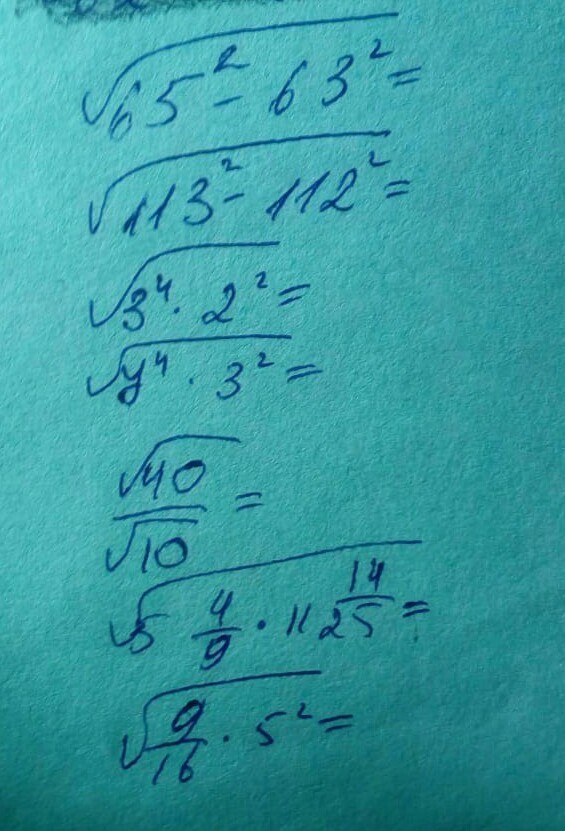 √(65² - 63²) =
√(113² - 112²) =
√(3⁴ · 2²) =
√(y⁴ · 3²) =
√40 / √10 =
√(5 4/9 · 11 14/25) =
√(9/16 · 5²) =